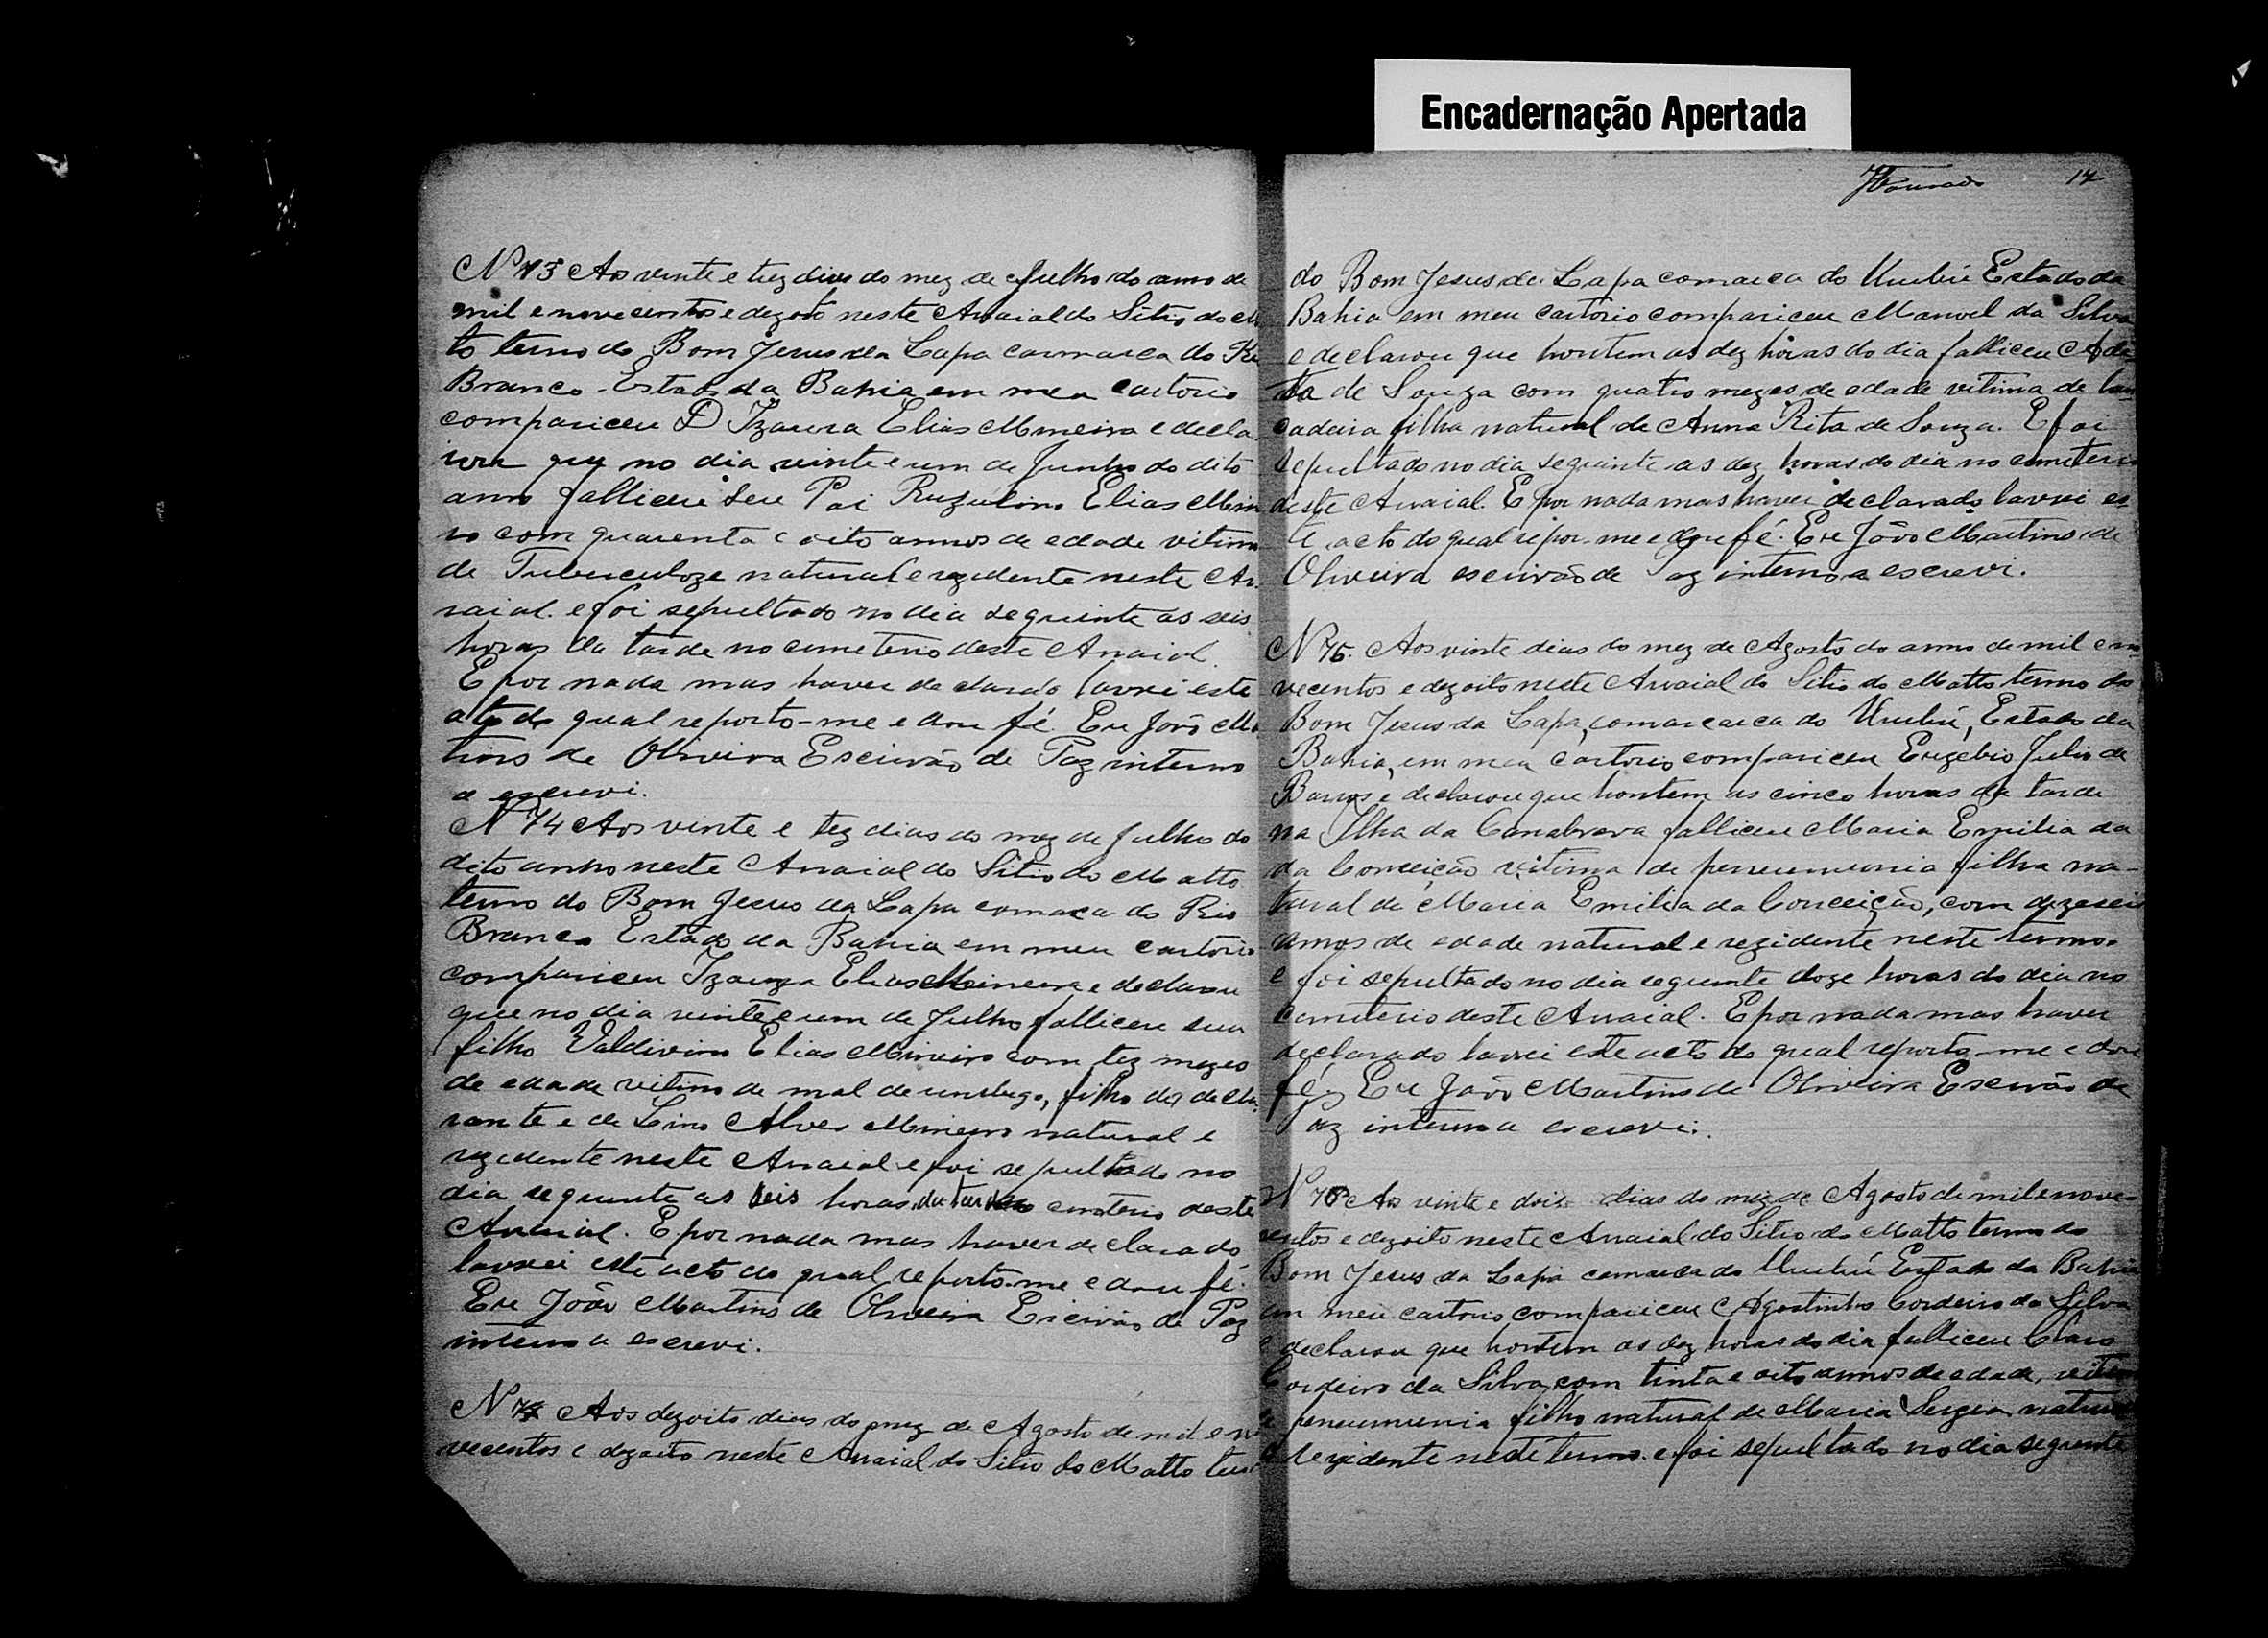 Encadernação Apertada
14
N 73 Aos vinte e trez dias do mez de Julho do anno de
mil e novecentos e dezoito neste Arraial do Sitio do Ma
to termo do Bom Jesus da Lapa comarca do Ri
Branco Estado da Bahia em meu cartorio
compariceu D Izaura Elias Mineira e decla
rou que no dia vinte e um de Junho do dito
anno falliceu seu Pai Elias Minei
ro com quarenta e oito annos de edade vitima
de Tuberculoze natural e rezidente neste Ar
raial e foi sepultado no dia seguinte as seis
horas da tarde no cemeterio deste Arraial.
E por nada mas haver declarado lavrei este
acto do qual reporto-me e dou fé. Eu João Ma
tins de Oliveira Escrivão de Paz interno
a escrevi.
N 74 Aos vinte e trez dias do mez de Julho do
dito anno neste Arraial do Sitio do Matto
termo do Bom Jesus da Lapa comarca do Rio
Branco Estado da Bahia em meu cartorio
compariceu Izaura Elias Mineira e declarou
que no dia vinte e um de Julho falliceu seu
filho Valdivino Elias Mineiro com trez mezes
de edade vitima de mal de umbigo, filho da decla
rante e de Lino Alves Mineiro natural e
rezidente neste Arraial e foi sepultado no
dia seguinte as seis horas da tarde no cemeterio deste
Arraial. E por nada mas haver declarado
lavrei este acto do qual reporto-me e dou fé.
Eu João Martins de Oliveira Escrivão de Paz
interno a escrevi.
N Aos dezoito dias do mez de Agosto de mil e no
vecentos e dezoito neste Arraial do Sitio do Matto term
do Bom Jesus da Lapa comarca do Urubú Estado da
Bahia em meu cartorio compariceu Manoel da Silva
e declarou que hontem as dez horas do dia falliceu
de Souza com quatro mezes de edade vitima de
filha natural de Anna Rita de Souza. E foi
sepultado no dia seguinte as dez horas do dia no cemeterio
deste Arraial. E por nada mas haver declarado lavrei es
te acto do qual repor-me e dou fé. Eu João Martins de
Oliveira escrivão de Paz interno a escrevi.
N 75. Aos vinte dias do mez de Agosto do anno de mil e no
vecentos e dezoito neste Arraial do Sitio do Matto termo do
Bom Jesus da Lapa, comarcarca do Urubú, Estado da
Bahia, em meu cartorio compariceu Euzebio Julio de
Barros e declarou que hontem as cinco horas da tarde
na Ilha da Canabrava falliceu Maria Emilia da
da Conceição vitima de peneumunia filha na-
tural de Maria Emilia da Conceição, com dezeseis
annos de edade natural e rezidente neste termo.
e foi sepultado no dia seguinte doze horas do dia no
cemeterio deste Arraial. E por nada mas haver
declarado lavrei este acto do qual reporto-me e dou
fé. Eu João Martins de Oliveira Escrivão de
Paz interno a escrevi.
N 76 Aos vinte e dois dias do mez de Agosto de mil e nove-
centos e dezoito neste Arraial do Sitio do Matto termo do
Bom Jesus da Lapa comarca do Urubú Estado da Bahia
em meu cartorio compariceu Agostinho Cordeiro da Silva
e declarou que hontem as dez horas do dia falliceu Claro
Cordeiro da Silva, com trinta e oito annos de edade, vitima
de peneumunia filho natural de Maria Sergia natural
e rezidente neste termo. e foi sepultado no dia seguinte